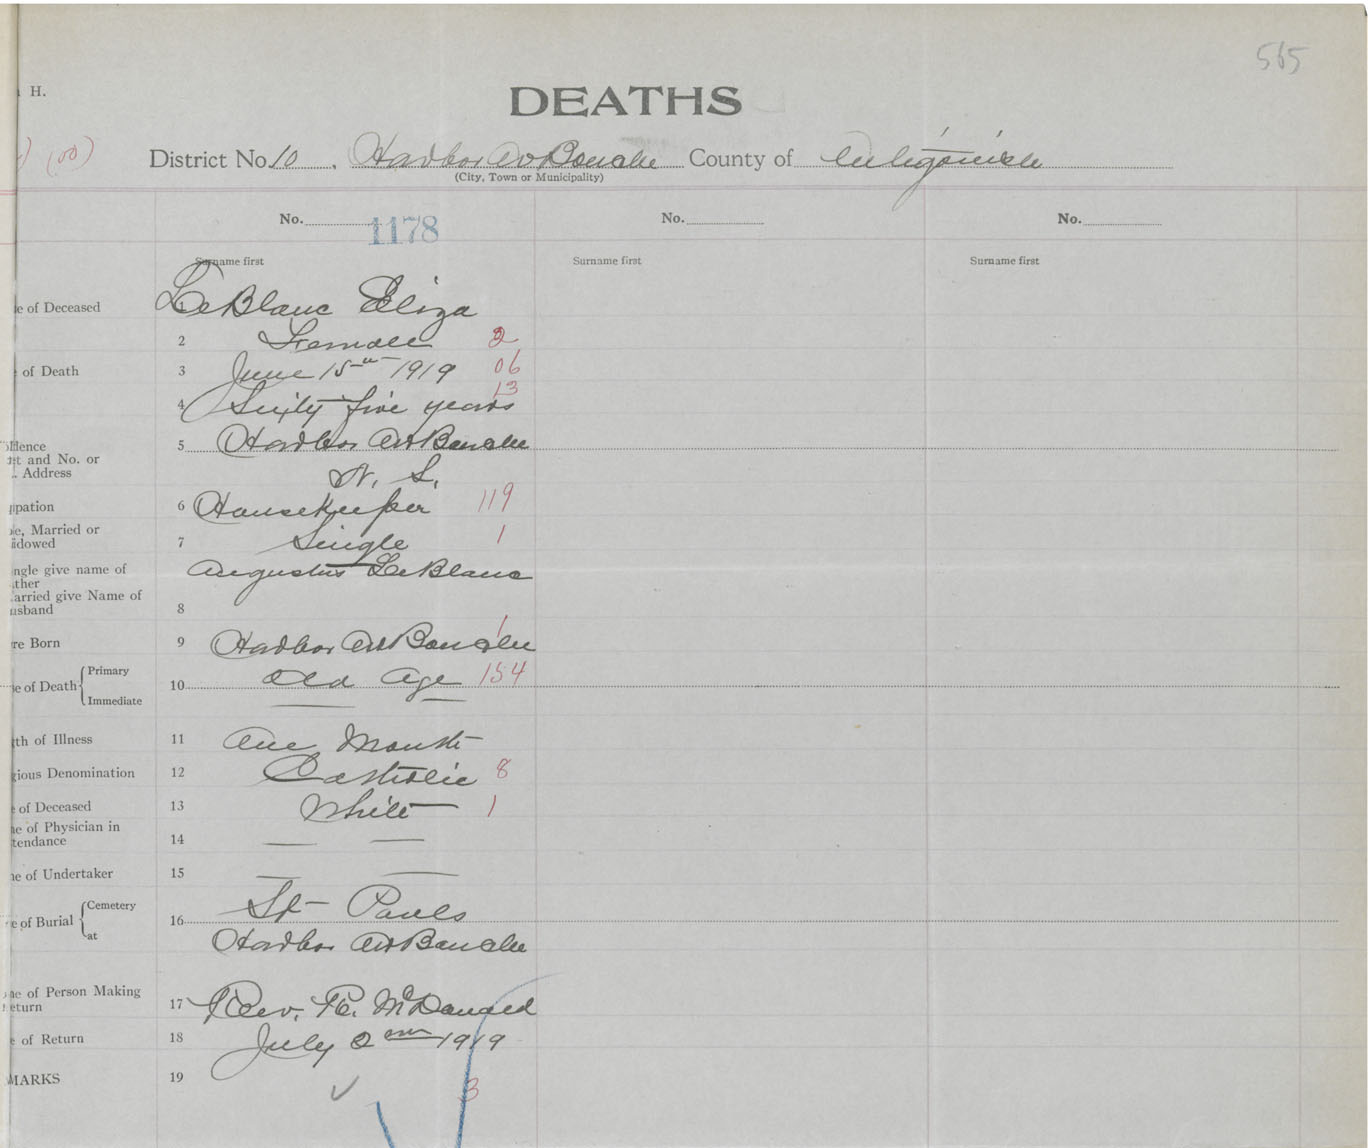 565
H.
DEATHS
(00)
District No. 10, Harbor Au Bouche County of Antigonish
(City, Town or Municipality)
No. 1178 No. No.
Surname first Surname first Surname first
e of Deceased 1 LeBlanc Eliza
2 Female 2
of Death 3 June 15th 1919 06
13
4 Sixty five years
dence 5 Harbor Au Bouche
et and No. or
. Address N. S.
upation 6 HouseKeeper 119
le, Married or
idowed 7 Single 1
ngle give name of Augustus LeBlanc
ther
arried give Name of
usband 8
1
re Born 9 Harbor Au Bouche
e of Death Primary 10 Old Age 154
Immediate
th of Illness 11 One Month
gious Denomination 12 Catholic 8
e of Deceased 13 White 1
ne of Physician in
tendance 14
ne of Undertaker 15
e of Burial Cemetery 16 St Pauls
at Harbor Au Bouche
me of Person Making
Return 17 Rev. McDonald
e of Return 18 July 2nd 1919
MARKS 19
3